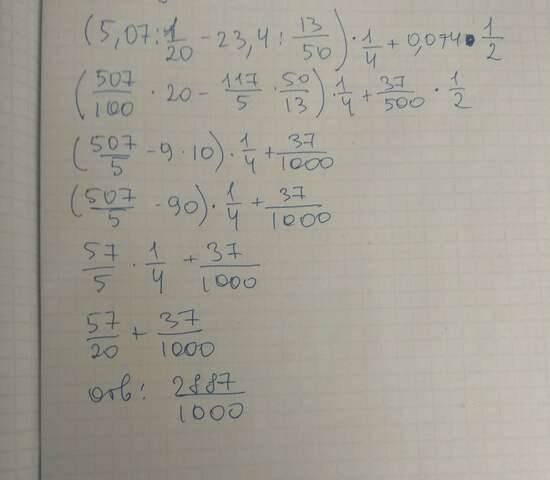 (5,07 : 1/20 - 23,4 : 13/50) · 1/4 + 0,074 · 1/2
(507/100 · 20 - 117/5 · 50/13) · 1/4 + 37/500 · 1/2
(507/5 - 9 · 10) · 1/4 + 37/1000
(507/5 - 90) · 1/4 + 37/1000
57/5 · 1/4 + 37/1000
57/20 + 37/1000
отв: 2887/1000